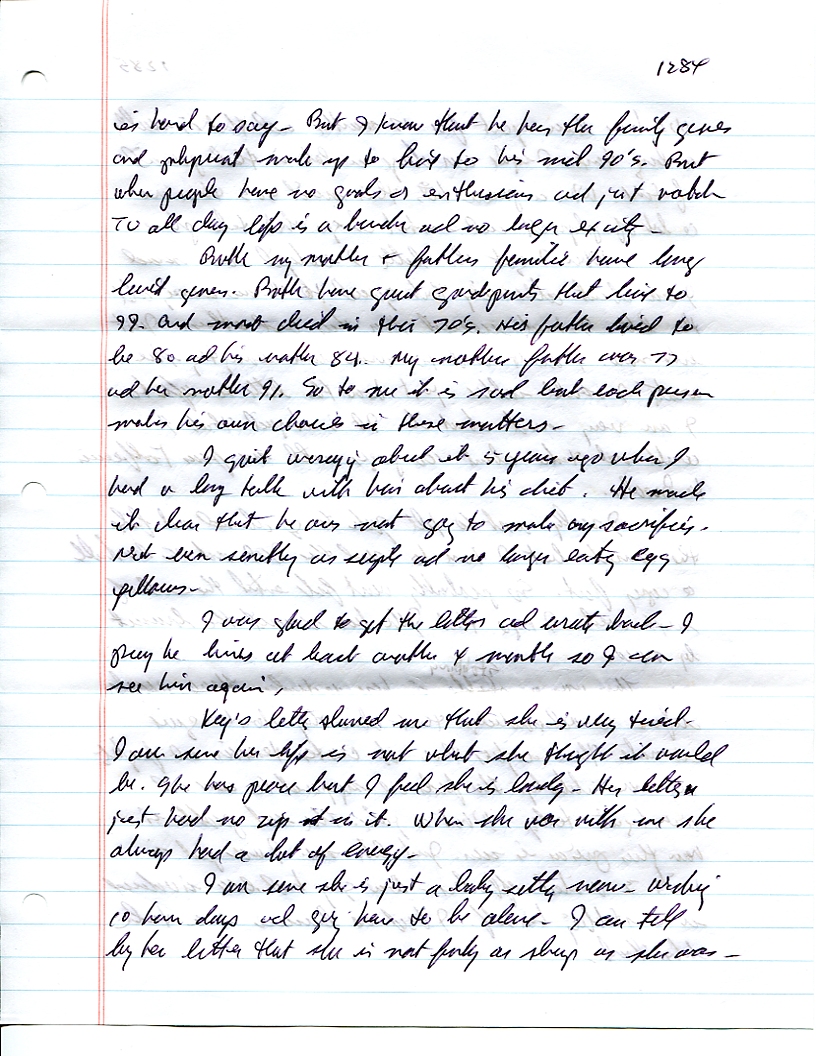 1284
is hard to say - But I know that he has the family genes
and physical make up to live to his mid 90's. But
when people have no goals or enthusiasm ad just watch
TV all day life is a burden ad no longer exciting -
Both my mother + fathers families have long
lived genes. Both have great grandparents that live to
99. and most died in their 70's. His father lived to
be 80 ad his mother 84. My mother father was 77
ad her mother 91. So to me it is sad but each person
makes his own choices in these matters -
I quit worrying about it 5 years ago when I
had a long talk with him about his diet. He made
it clear that he was not going to make any sacrifices.
Not even something as simple ad no longer eating egg
I was glad to get the letter ad wrote back - I
pray he lives at least another 4 months so I can
see him again,
Kay's letter showed me that she is very tired.
I am sure her life is not what she thought it would
be. She has peace but I feel she is lonely - Her letter
just had no zip in it. When she was with me she
always had a lot of energy -
I am sure she is just a baby sitting now - working
10 hour days ad going home to be alone - I can tell
by her letter that she is not as sharp as she was -